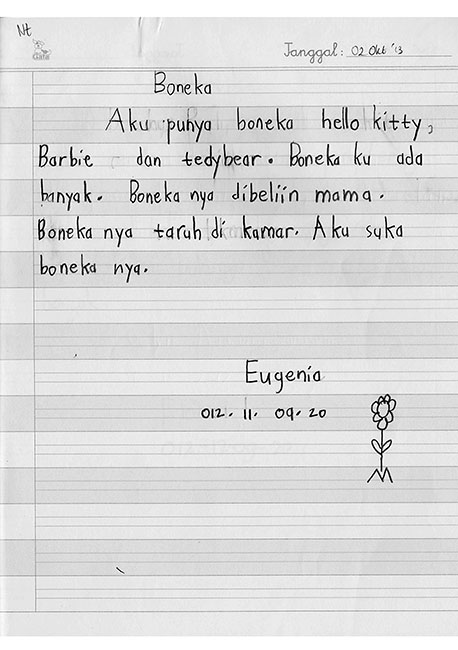 Nt
Gafa
Tanggal: 02 Okt '13
Boneka
Aku punya boneka hello kitty,
Barbie dan tedybear. Boneka ku ada
banyak. Boneka nya dibeliin mama.
Boneka nya taruh di kamar. Aku suka
boneka nya.
Eugenia
012. 11. 09. 20